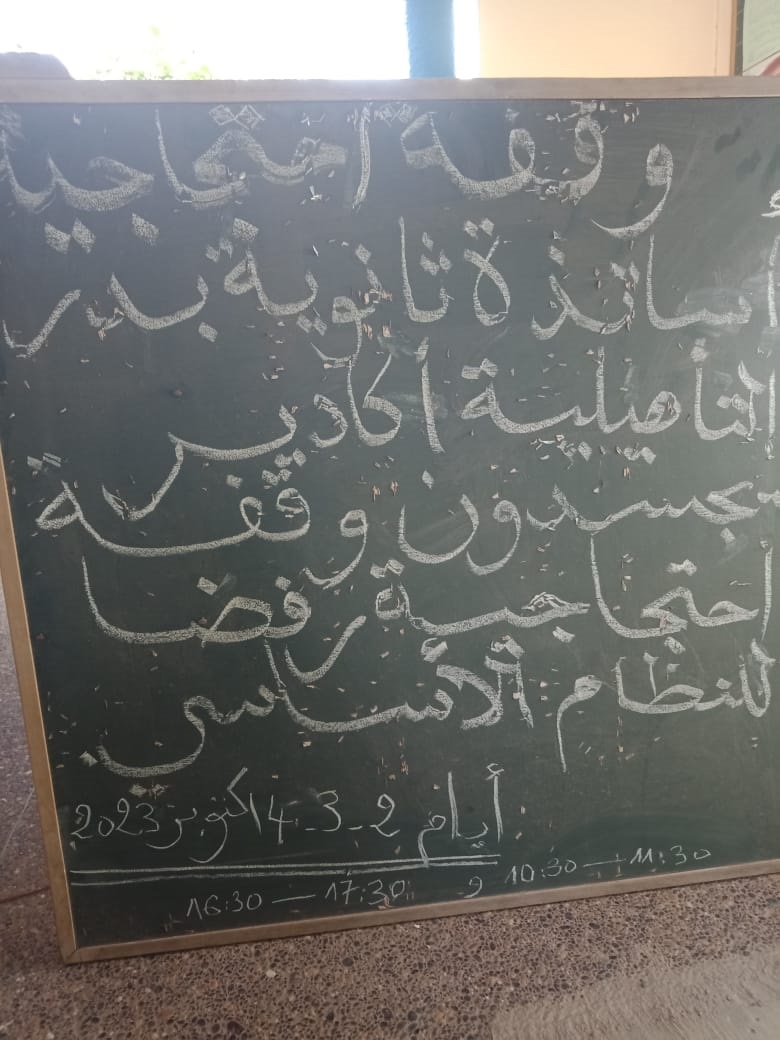 وقفة احتجاجية
أساتذة ثانوية بدر
التأهيلية أكادير
يجسدون وقفة
احتجاجية رفضا
للنظام الأساسي
أيام 2-3-4 اكتوبر 2023
10:30 — 11:30 و 16:30 — 17:30